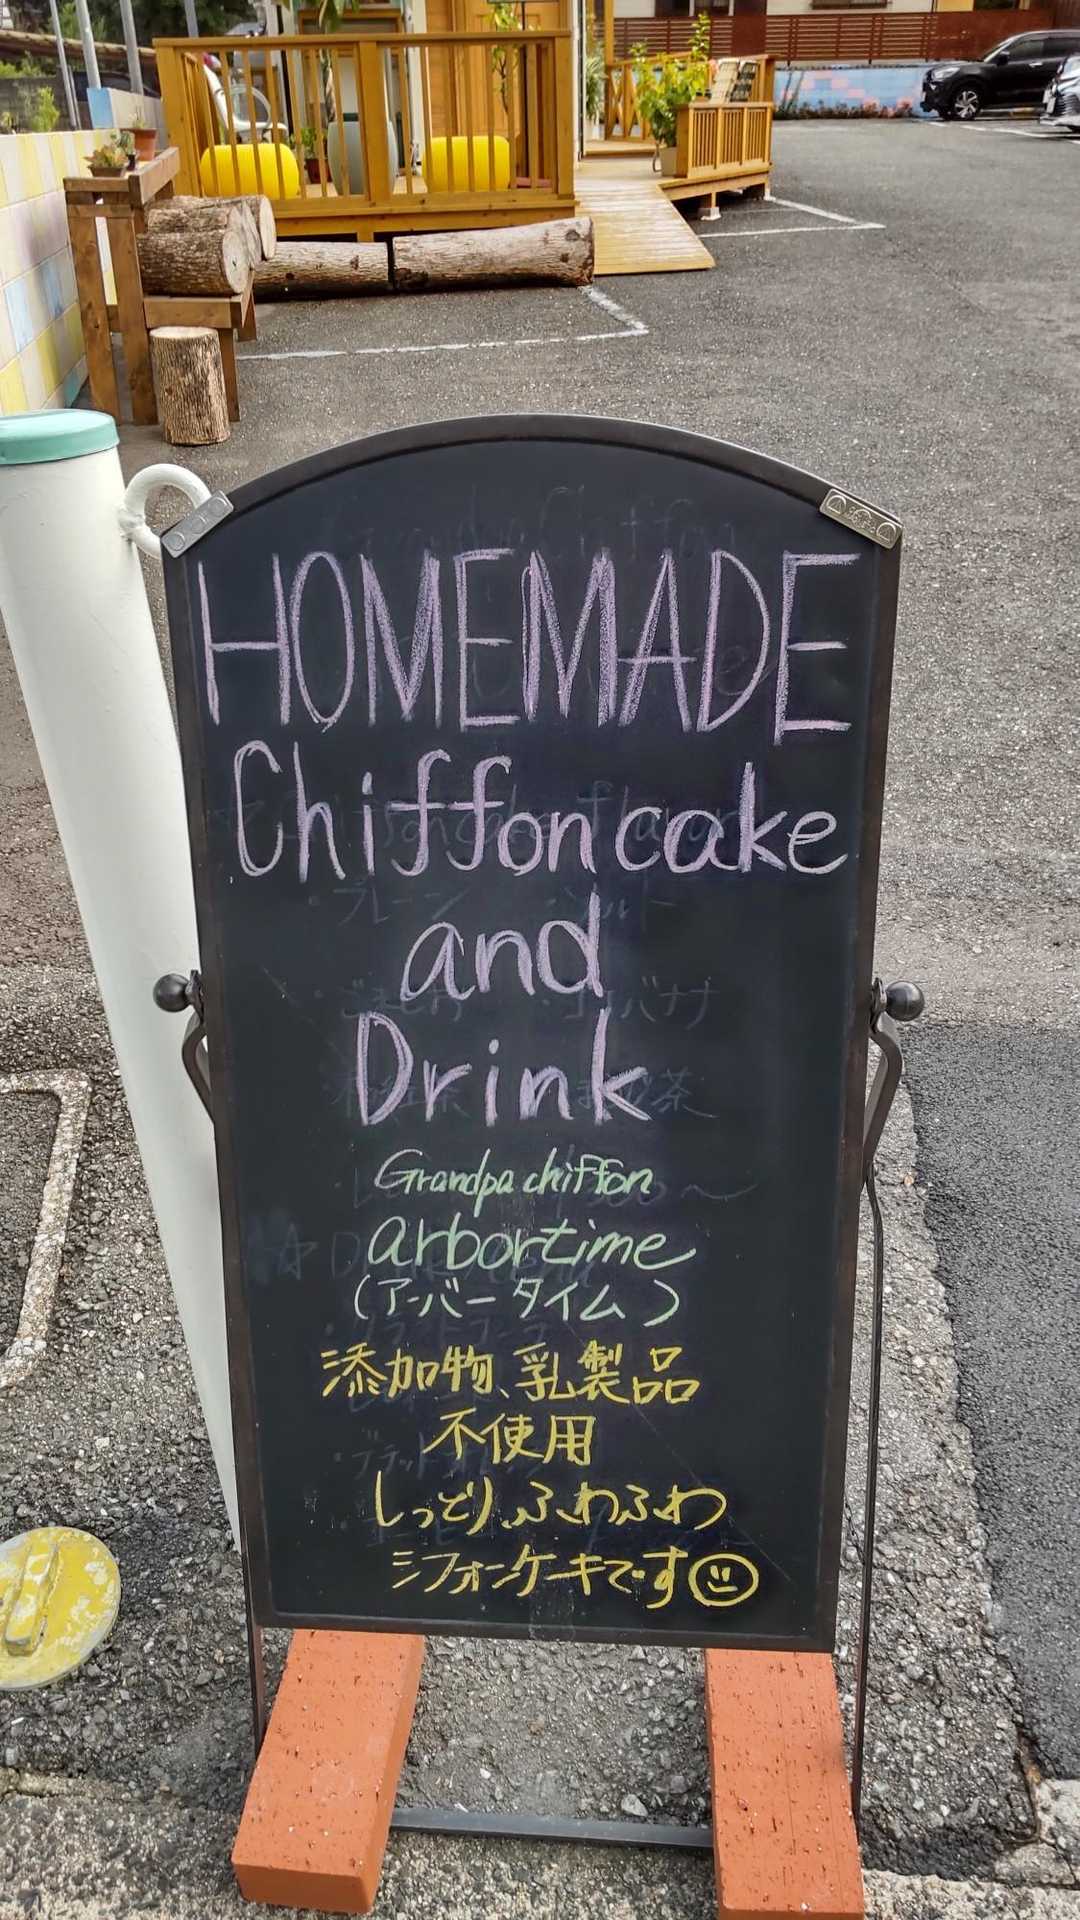 HOMEMADE
Chiffoncake
and
Drink
Grandpa chiffon
arbortime
(アーバータイム)
添加物、乳製品
不使用
しっとり、ふわふわ
シフォンケーキです